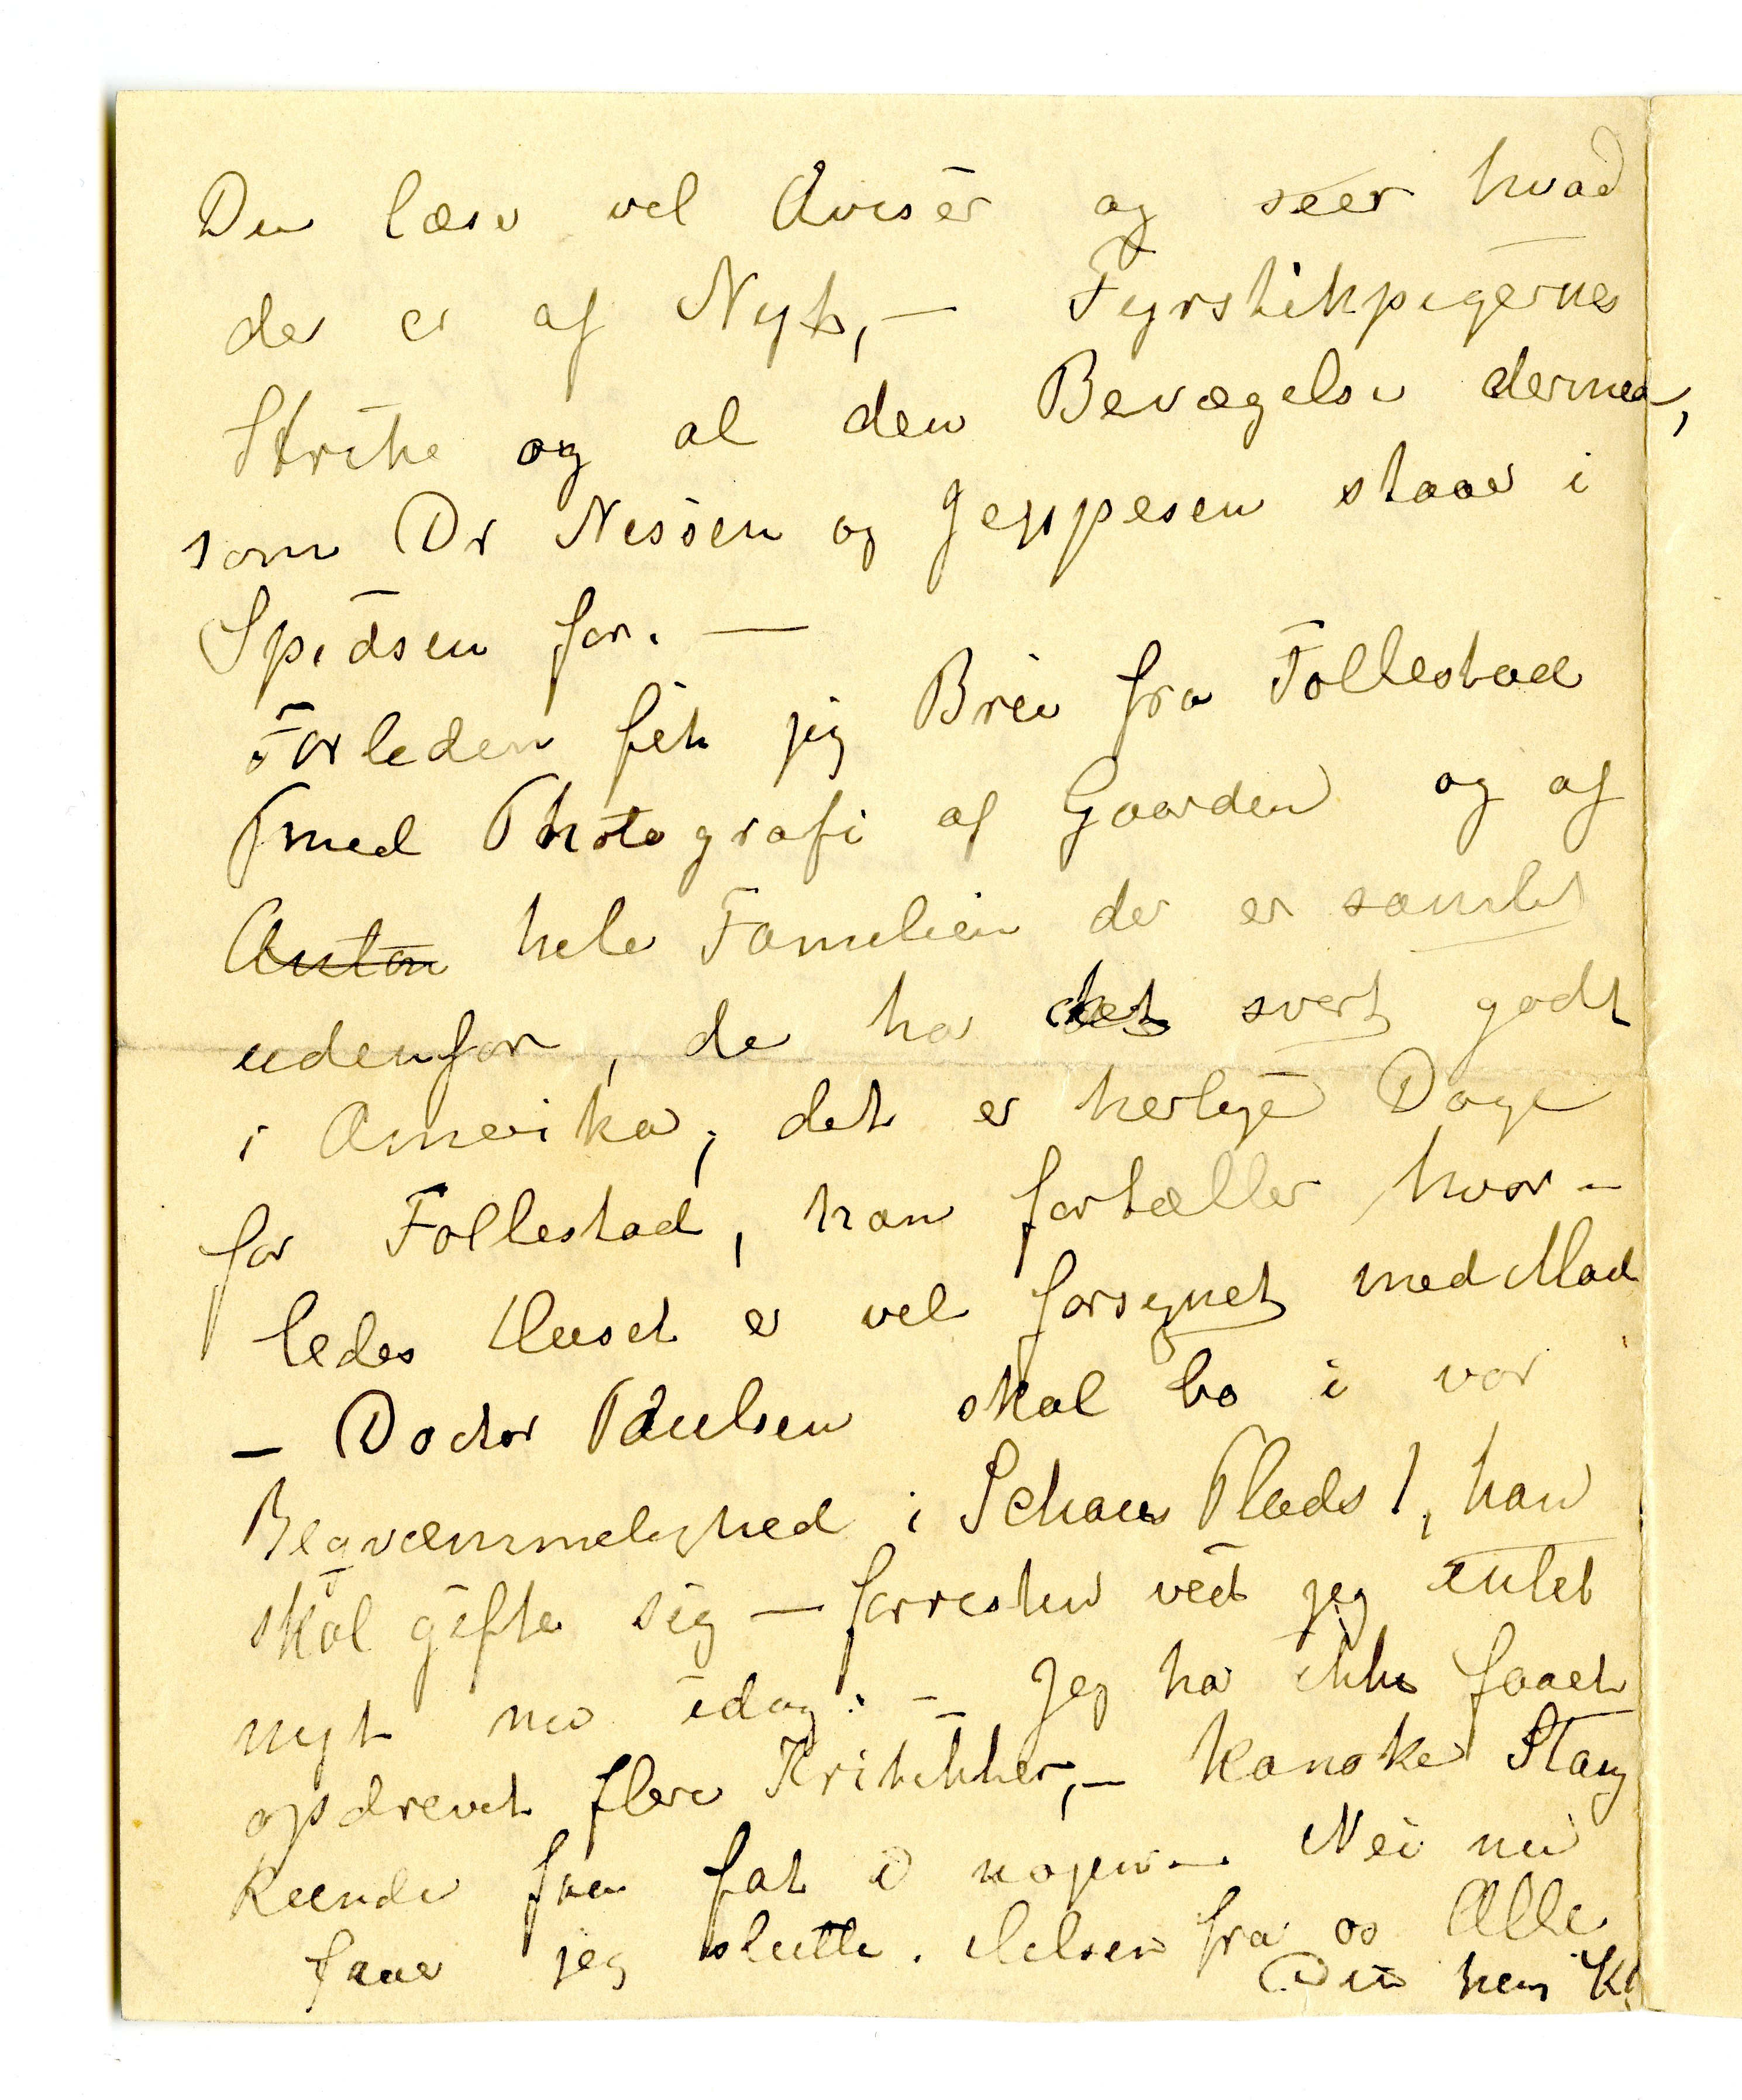 Du læser vel Aviser og seer hvad
der er af Nyt, — Fyrstikpigernes
Strike og al den Bevægelse dermed,
som Dr Nissen og Jeppesen staar i
Spidsen for. —
Forleden fik jeg Brev fra Follestad
med Photografi af Gaarden og af
Anton hele Familien der er samlet
udenfor, de har det svert godt
i Amerika; det er herlige Dage
for Follestad, han fortæller hvor-
ledes Huset er vel forsynet med Mad
— Doctor Paulsen skal bo i vor
Beqvæmmelighed i Schous Plads 1, han
skal gifte sig — forresten ved jeg intet
nyt nu idag. — Jeg har ikke faaet
opdrevet flere Kritikker, — kanske Stang
kunde faa fat i nogen — Nei nu
faar jeg slutte. Hilsen fra os Alle
Din heng K